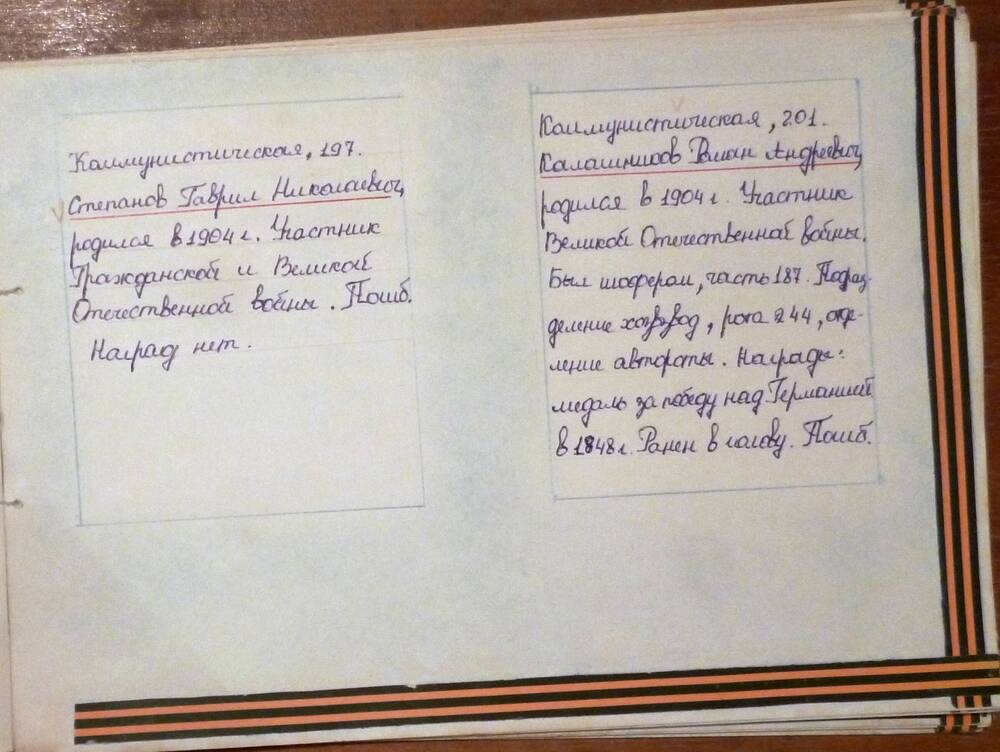 Коммунистическая, 197.
Степанов Гаврил Николаевич,
родился в 1904 г. Участник
Гражданской и Великой
Отечественной войны. Погиб.
Наград нет.
Коммунистическая, 201.
Калашников Роман Андреевич,
родился в 1904 г. Участник
Великой Отечественной войны.
Был шофером, часть 187. Подраз-
деление хозвзвод, рота 244, отде-
ление автороты. Награды:
медаль за победу над Германией
в 1848 г. Ранен в голову. Погиб.